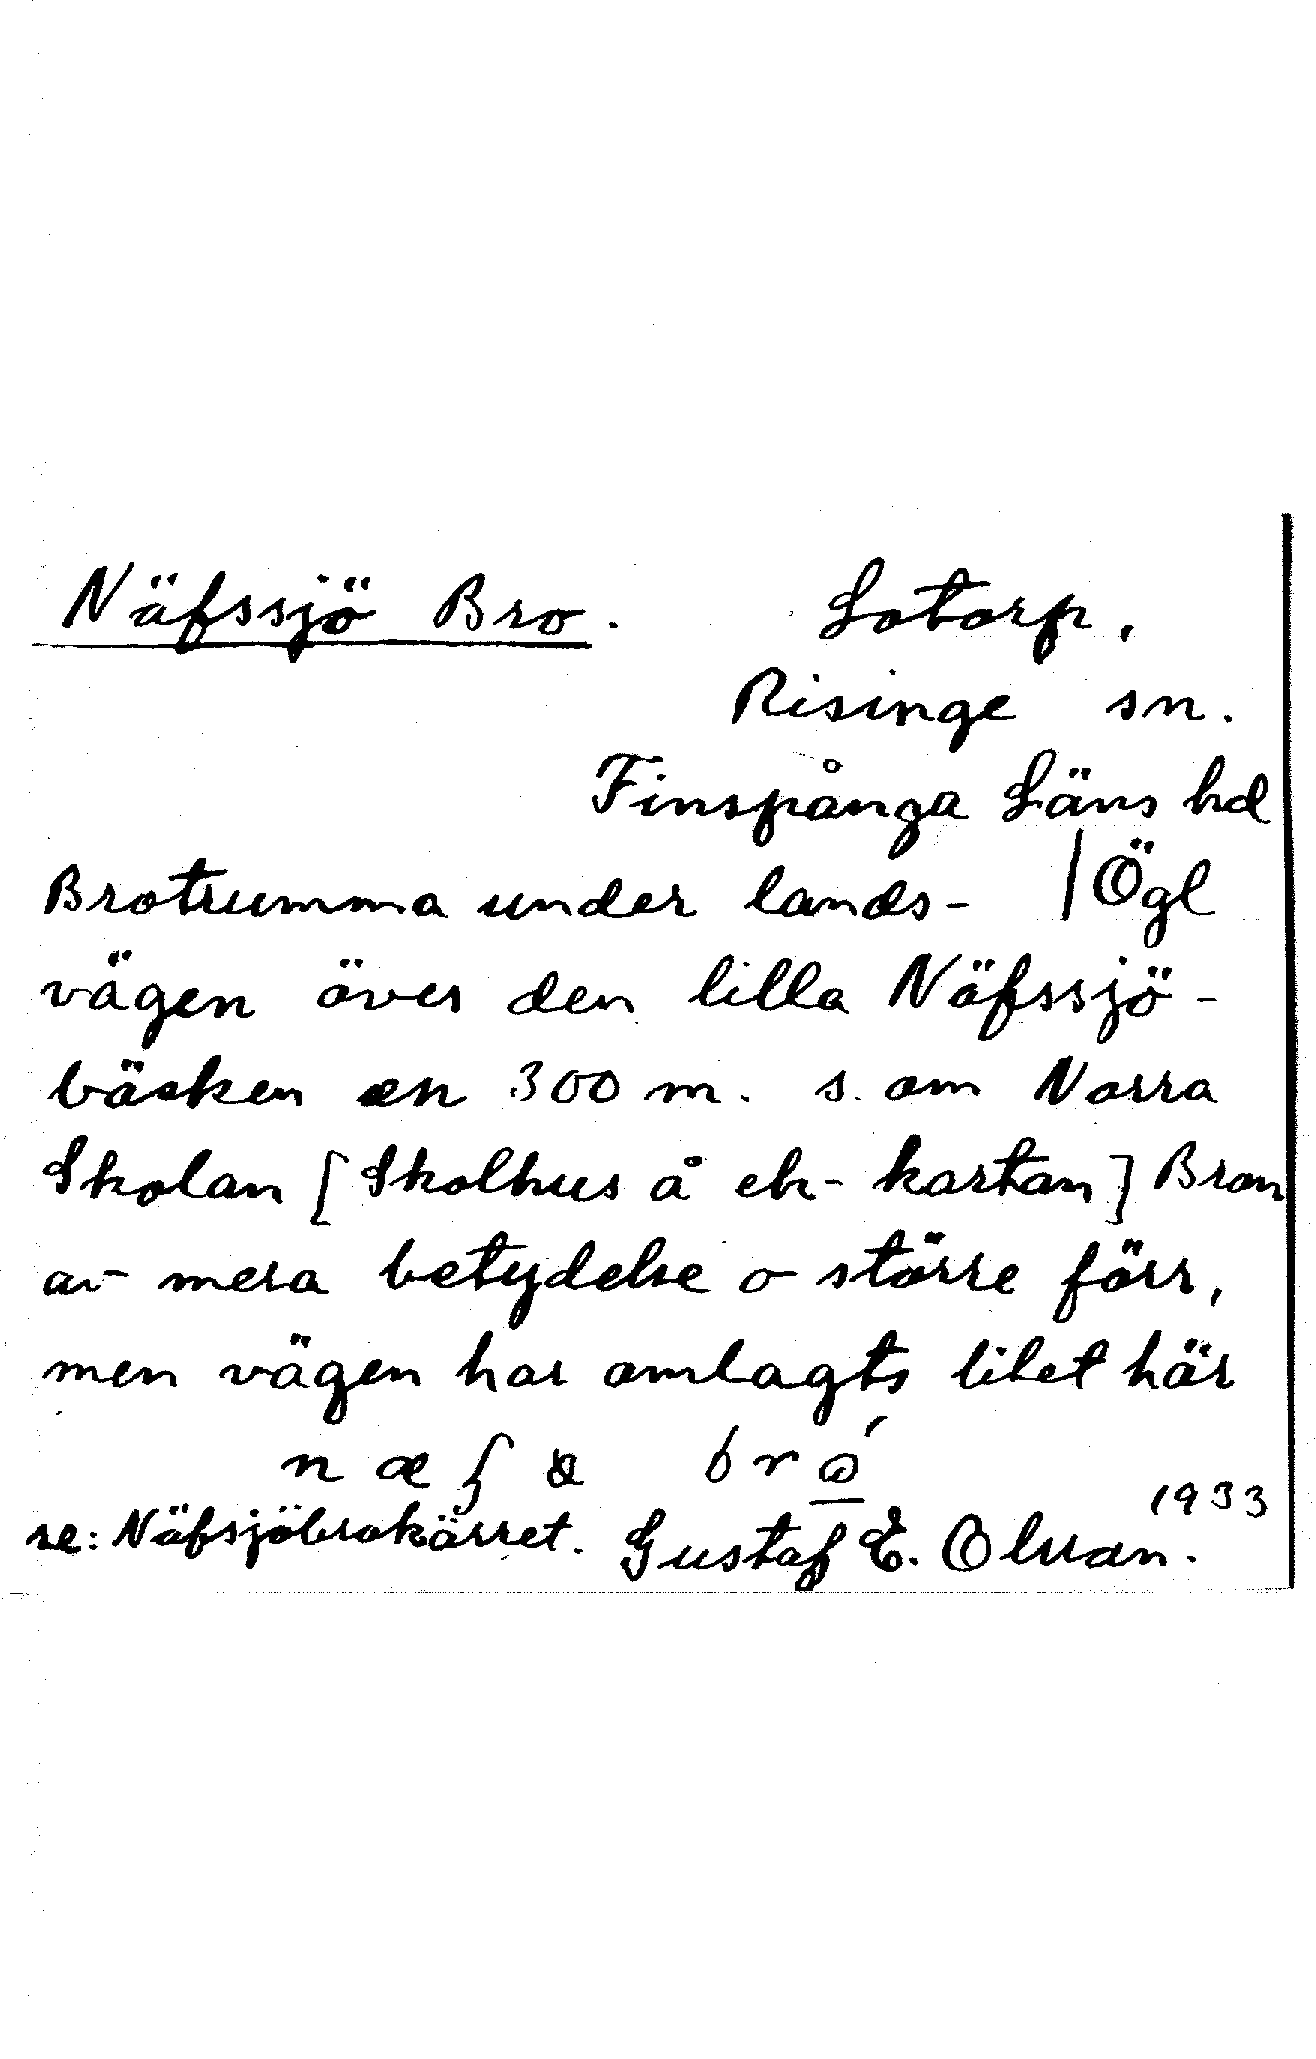 Näfssjö Bro. Lotorp,
Risinge sn.
Finspånga Läns hd
Brotrumma under lands- / Ögl
vägen över den lilla Näfssjö-
bäcken en 300 m. s. om Norra
Skolan [Skolhus å ek-kartan] Bron
av mera betydelse o större förr,
men vägen har omlagts litet här
br
se: Näfsjöbrokärret. Gustaf E. Olsson. 1933